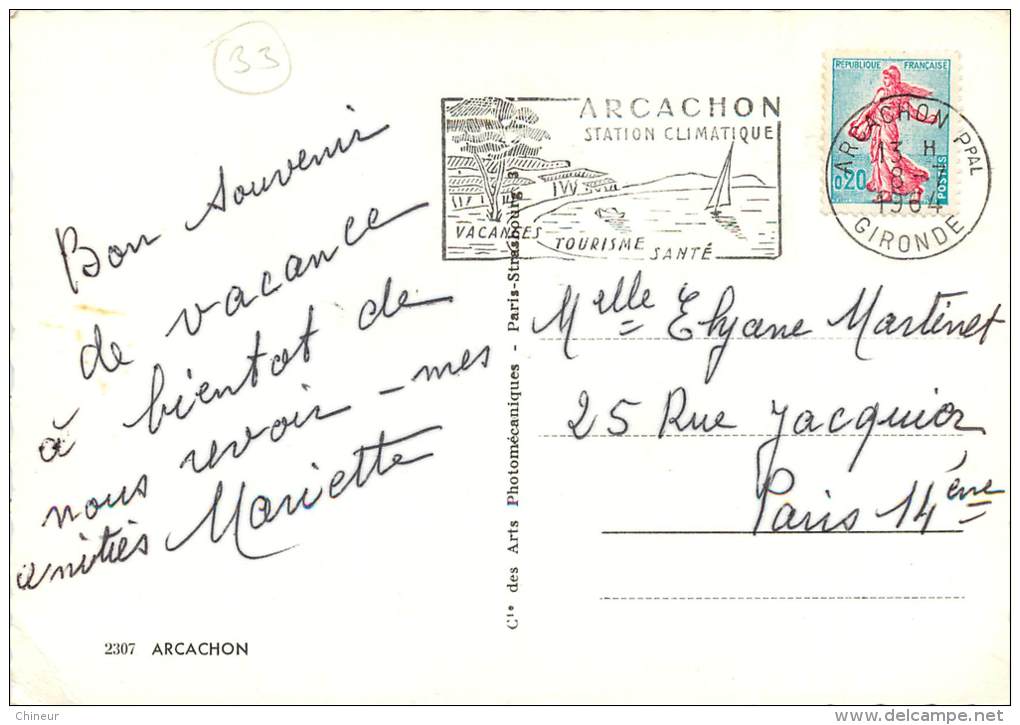 33
ARCACHON
STATION CLIMATIQUE
VACANCES
TOURISME
SANTÉ
REPUBLIQUE FRANÇAISE
0,20
POSTES
ARCACHON PPAL
13 H
8
1964
GIRONDE
Bon Souvenir
de vacance
à bientot de
nous revoir - mes
amitiés Mariette
Cie des Arts Photomécaniques - Paris-Strasbourg 3
Melle Elyane Martinet
25 Rue Jacquier
Paris 14ème
2307 ARCACHON
Chineur
www.delcampe.net